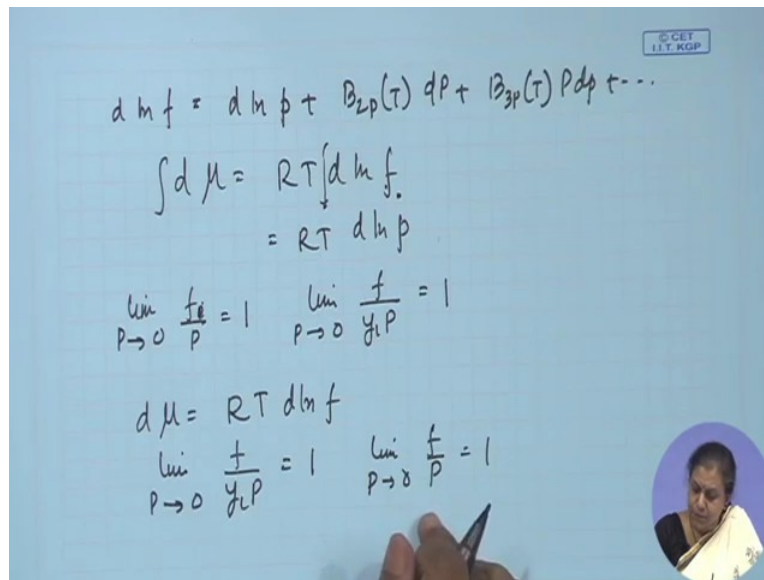 © CET
I.I.T. KGP
d ln f = d ln p + B_{2p}(T) dP + B_{3p}(T) P dp + ---
∫d μ = RT∫d ln f.
= RT d ln p
lim_{P→0} f/P = 1 lim_{P→0} f/(y_i P) = 1
d μ = RT d ln f
lim_{P→0} f/(y_i P) = 1 lim_{P→0} f/P = 1